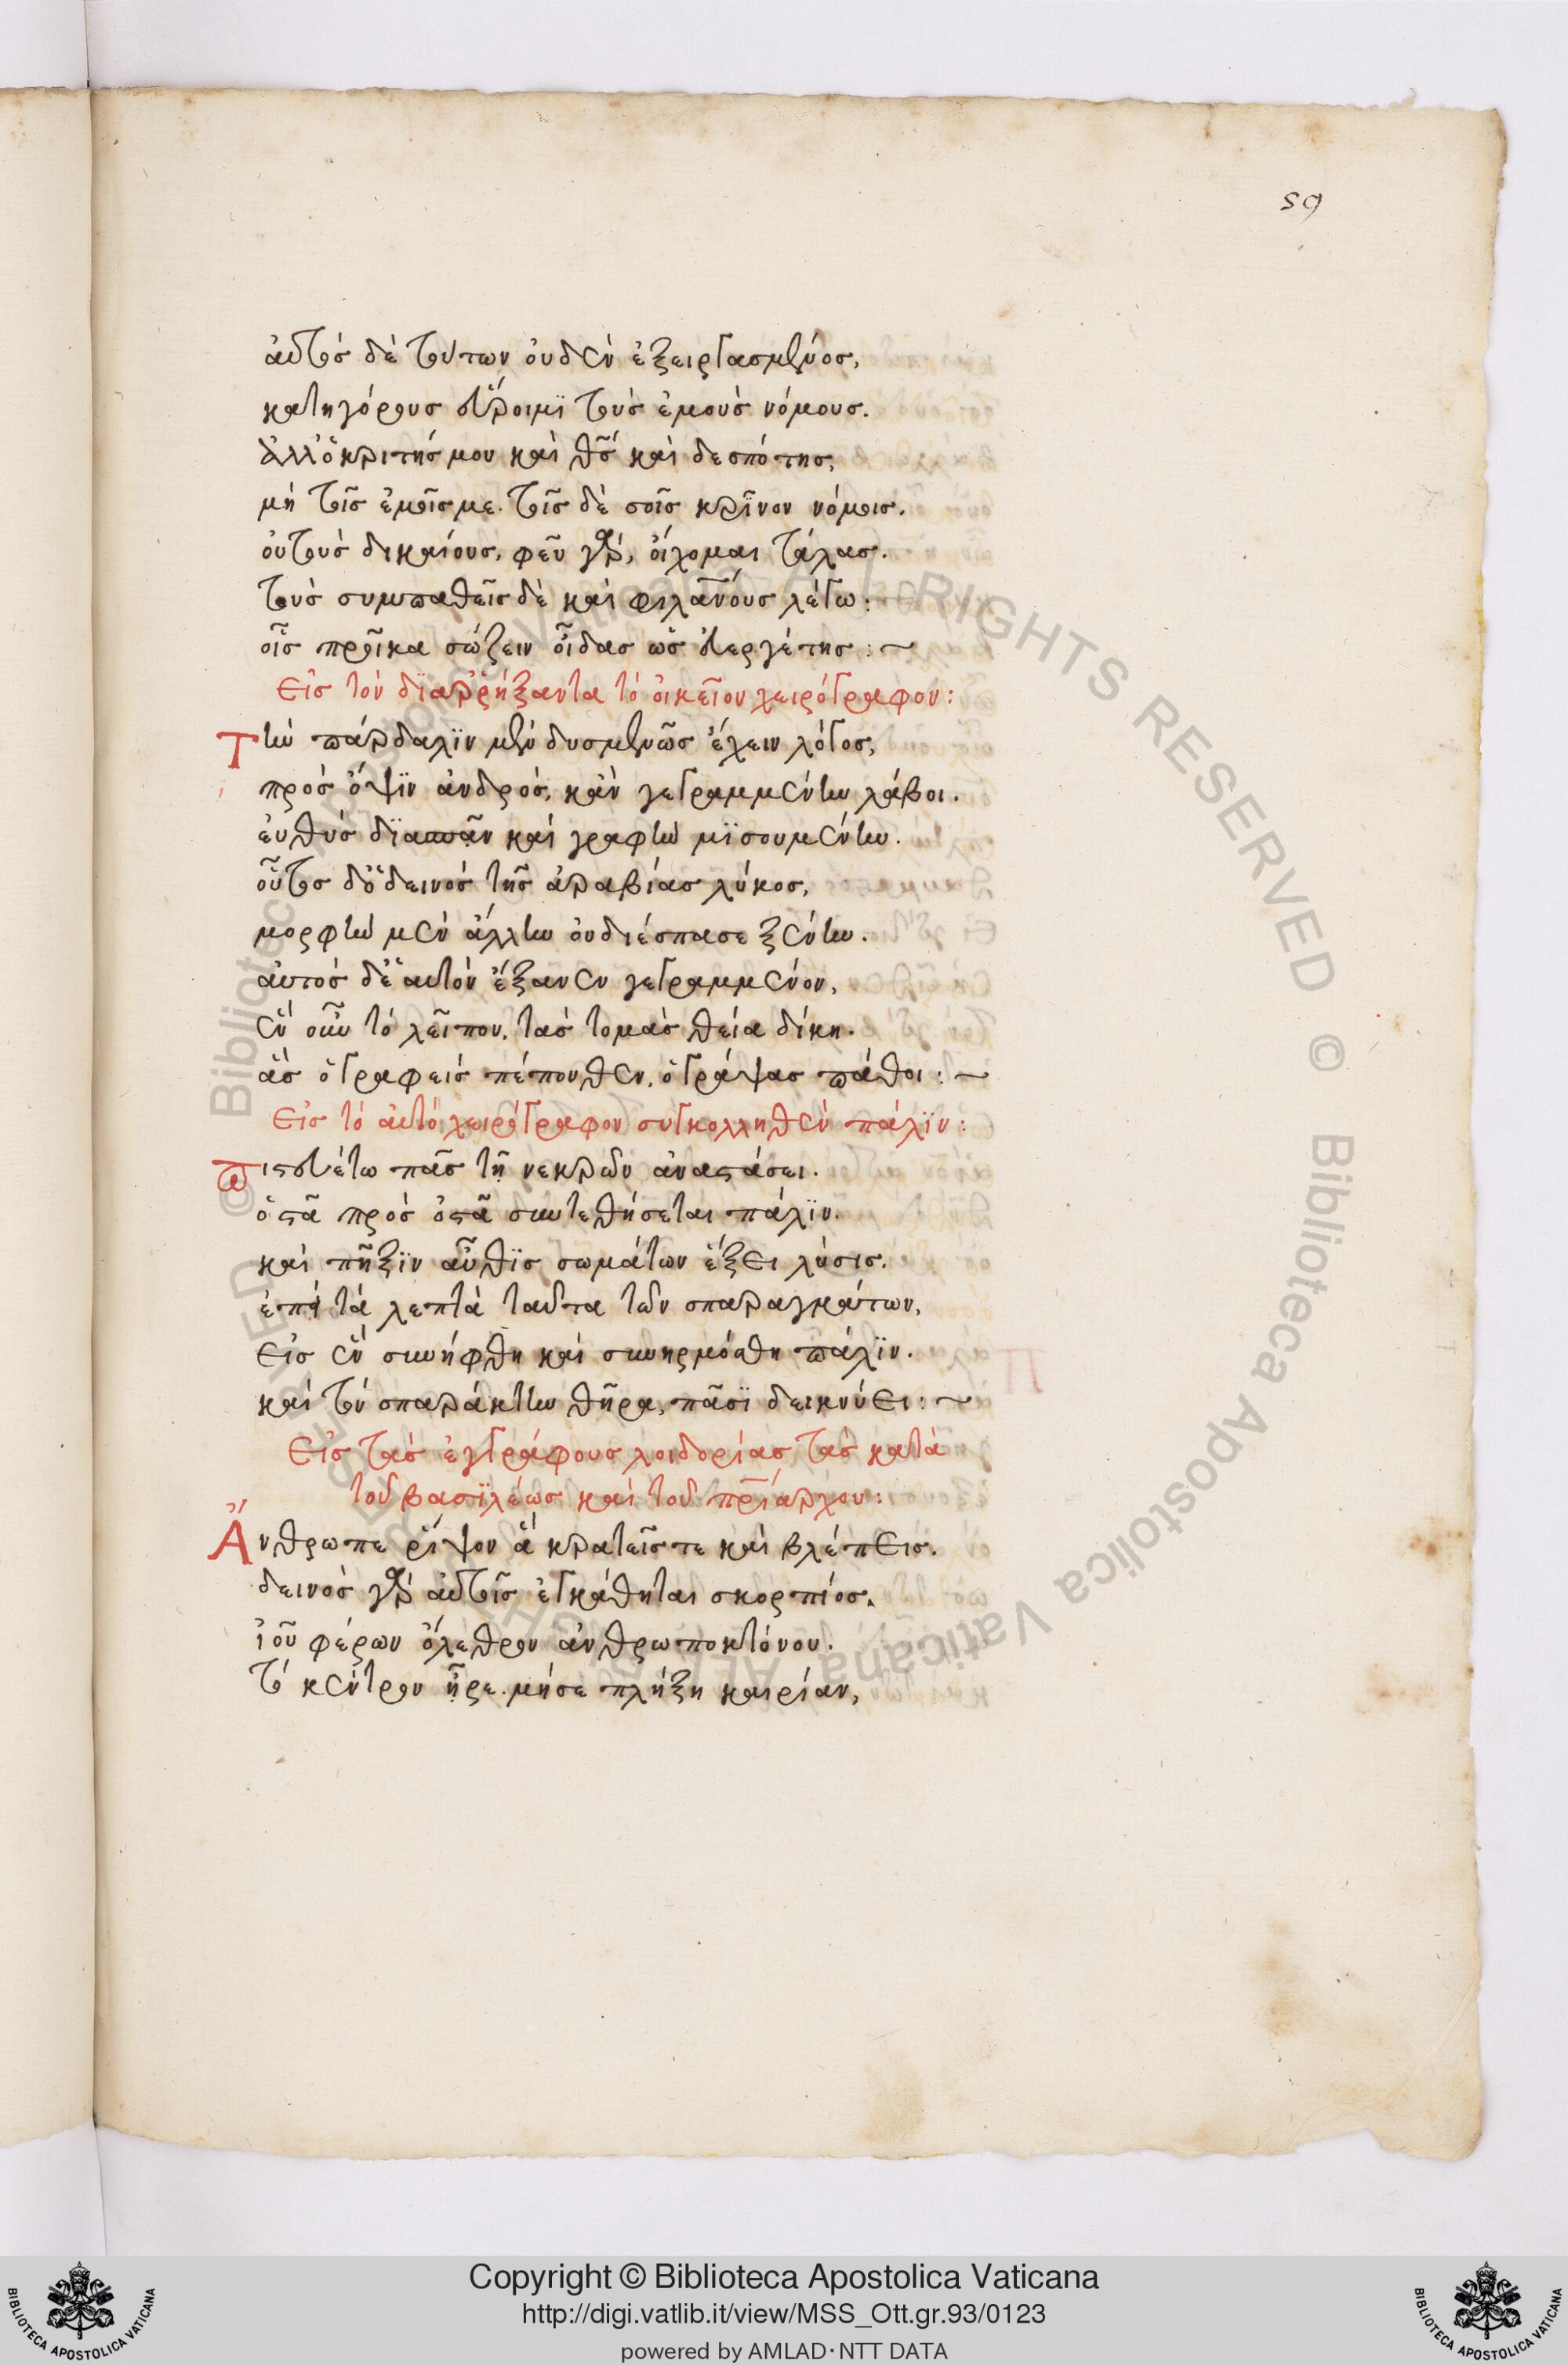 59
αὐτὸς δὲ τούτων οὐδὲν ἐξειργασμένος,
κατηγόρους εὕροιμϊ τοὺς ἐμοὺς νόμους.
ἀλλ' ὁ κριτής μου καὶ θς καὶ δεσπότης,
μὴ τοῖς ἐμοῖς με. τοῖς δὲ σοῖς κρῖνον νόμοις.
οὐ τοὺς δικαίους, φεῦ γὰρ, οἴχομαι τάλας.
τοὺς συμπαθεῖς δὲ καὶ φιλανους λέγω:
οἷς προῖκα σώζειν οἶδας ὡς εὐεργέτης :~
Εἰς τὸν δϊαῤῥήξαντα τὸ οἰκεῖον χειρόγραφον:
Τὴν πάρδαλϊν μὲν δυσμενῶς ἔχειν λόγος,
πρὸς ὄψϊν ἀνδρός, κἂν γεγραμμένην λάβοι.
εὐθὺς δϊασπᾶν καὶ γραφὴν μϊσουμένην.
οὗτος δ' ὁ δεινὸς τῆς ἀραβίας λύκος,
μορφὴν μὲν ἄλλην οὐ διέσπασε ξένην.
αὐτὸς δ' ἑαυτὸν ἔξανεν γεγραμμένον,
ἓν οὖν τὸ λεῖπον, τὰς τομὰς θεία δίκη.
ἃς ὁ γραφεὶς πέπονθεν, ὁ γράψας πάθοι :~
Εἰς τὸ αὐτὸ χειρόγραφον συγκολληθὲν πάλϊν:
Πιστευέτω πᾶς τῇ νεκρῶν ἀναστάσει.
ὀστᾶ πρὸς ὀστᾶ συντεθήσεται πάλϊν.
καὶ πῆξϊν αὖθϊς σωμάτων ἕξει λύσις.
ἐπεὶ τὰ λεπτὰ ταῦτα τῶν σπαραγμάτων,
εἰς ἓν συνήφθη καὶ συνηρμόσθη πάλϊν.
καὶ τὸν σπαράκτην θῆρα, πᾶσϊ δεικνύει :~
Εἰς τὰς ἐγγράφους λοιδορίας τὰς κατὰ
τοῦ βασϊλέως καὶ τοῦ πριάρχου:
Ἄνθρωπε ῥίψον ἃ κρατεῖς τε καὶ βλέπεις.
δεινὸς γὰρ αὐτοῖς ἐγκάθηται σκορπίος.
ἰοῦ φέρων ὄλεθρον ἀνθρωποκτόνου.
τὸ κέντρον ᾖρε. μή σε πλήξη καιρίαν,
Copyright © Biblioteca Apostolica Vaticana
http://digi.vatlib.it/view/MSS_Ott.gr.93/0123
powered by AMLAD·NTT DATA
BIBLIOTECA APOSTOLICA VATICANA
BIBLIOTECA APOSTOLICA VATICANA